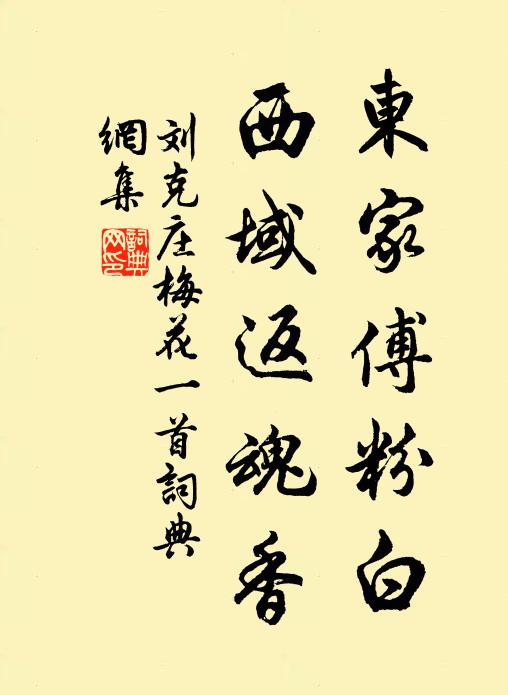 東家傅粉白
西域返魂香
刘克庄梅花一首詞典
網集
詞典網印